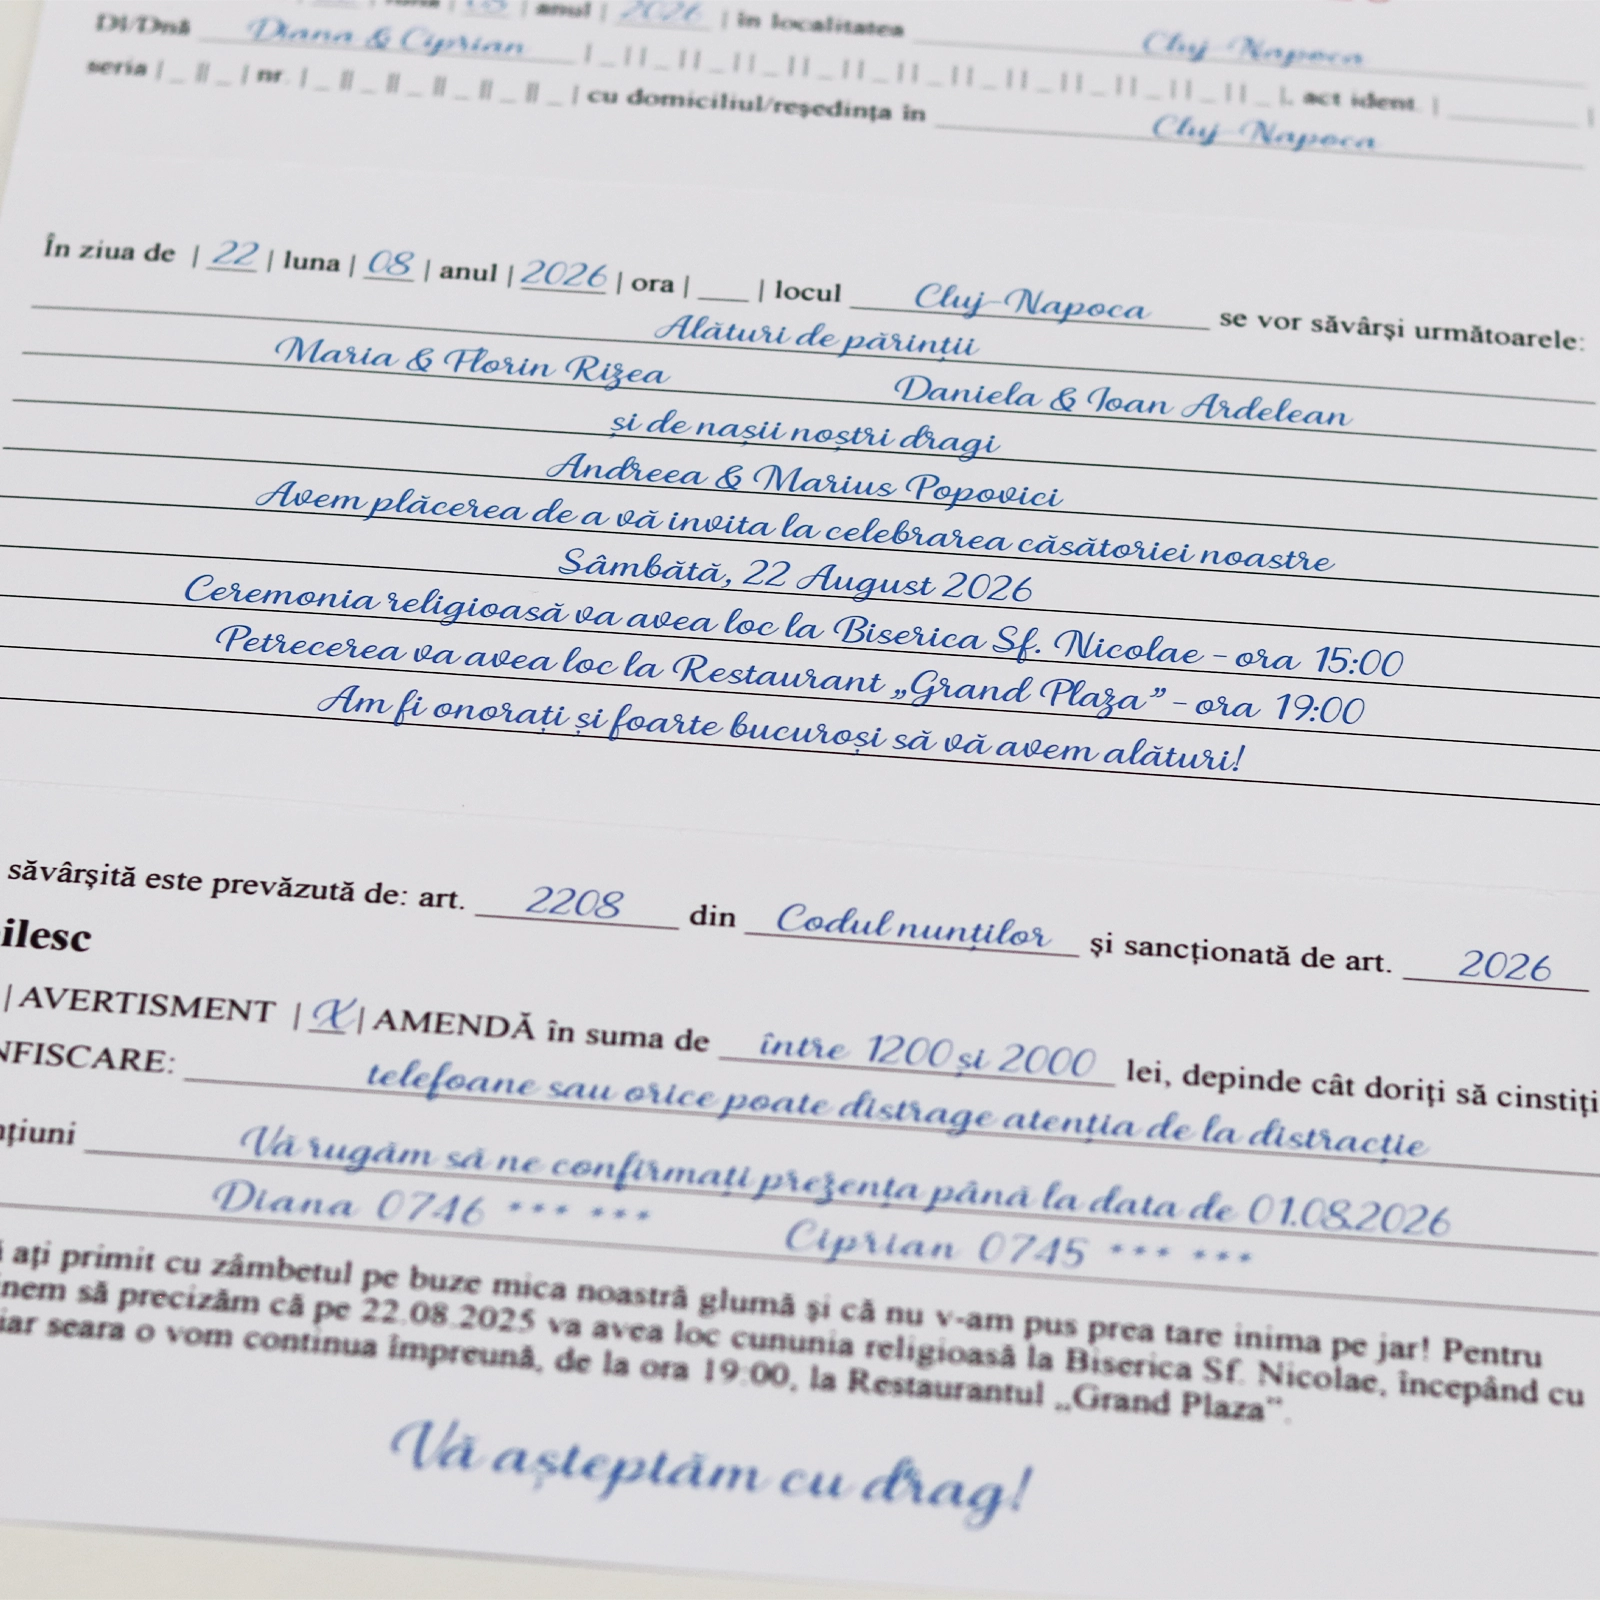 luna | 08 | anul | 2026 | în localitatea Cluj-Napoca
Dl/Dnă Diana & Ciprian |_||_||_||_||_||_||_||_||_||_||_||_||_|, act ident. |
seria |_||_| nr. |_||_||_||_||_||_| cu domiciliul/reședința în Cluj-Napoca
În ziua de | 22 | luna | 08 | anul | 2026 | ora | ___ | locul Cluj-Napoca se vor săvârși următoarele:
Alături de părinții
Maria & Florin Rizea Daniela & Ioan Ardelean
și de nașii noștri dragi
Andreea & Marius Popovici
Avem plăcerea de a vă invita la celebrarea căsătoriei noastre
Sâmbătă, 22 August 2026
Ceremonia religioasă va avea loc la Biserica Sf. Nicolae - ora 15:00
Petrecerea va avea loc la Restaurant „Grand Plaza” - ora 19:00
Am fi onorați și foarte bucuroși să vă avem alături!
săvârșită este prevăzută de: art. 2208 din Codul nunților și sancționată de art. 2026
ilesc
| AVERTISMENT | X | AMENDĂ în suma de între 1200 și 2000 lei, depinde cât doriți să cinstiți
NFISCARE: telefoane sau orice poate distrage atenția de la distracție
nțiuni Vă rugăm să ne confirmați prezența până la data de 01.08.2026
Diana 0746 *** *** Ciprian 0745 *** ***
ă ați primit cu zâmbetul pe buze mica noastră glumă și că nu v-am pus prea tare inima pe jar! Pentru
inem să precizăm că pe 22.08.2025 va avea loc cununia religioasă la Biserica Sf. Nicolae, începând cu
iar seara o vom continua împreună, de la ora 19:00, la Restaurantul „Grand Plaza”.
Vă așteptăm cu drag!